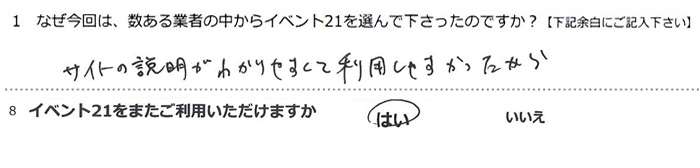 1 なぜ今回は、数ある業者の中からイベント21を選んで下さったのですか？【下記余白にご記入下さい】
サイトの説明がわかりやすくて利用しやすかったから
8 イベント21をまたご利用いただけますか はい いいえ